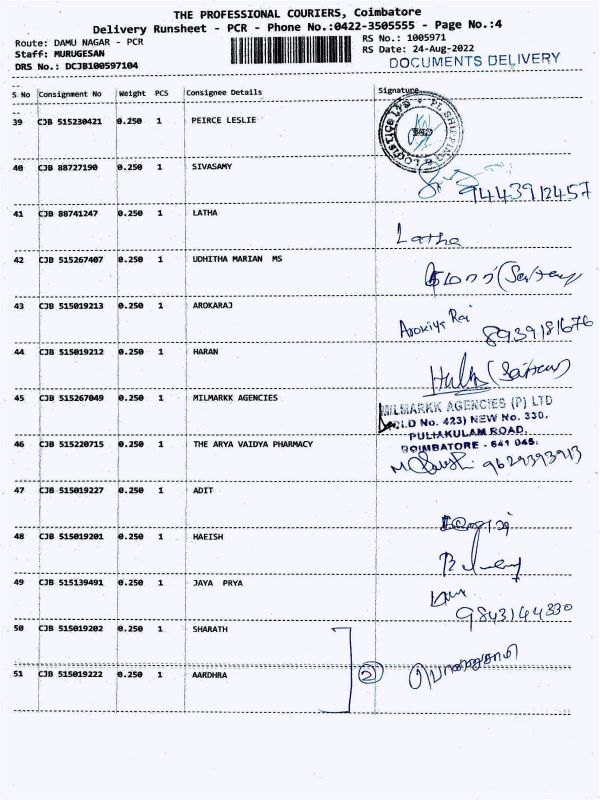 THE PROFESSIONAL COURIERS, Coimbatore
Delivery Runsheet - PCR - Phone No.:0422-3505555 - Page No.:4
Route: DAMU NAGAR - PCR
Staff: MURUGESAN
DRS No.: DCJB100597104
RS No.: 1005971
RS Date: 24-Aug-2022
DOCUMENTS DELIVERY
S No Consignment No Weight PCS Consignee Details Signature
39 CJB 515230421 0.250 1 PEIRCE LESLIE
40 CJB 88727190 0.250 1 SIVASAMY
9443912457
41 CJB 88741247 0.250 1 LATHA
Latha
42 CJB 515267407 0.250 1 UDHITHA MARIAN MS
43 CJB 515019213 0.250 1 AROKARAJ
Arokiya Raj 8939181676
44 CJB 515019212 0.250 1 HARAN
45 CJB 515267049 0.250 1 MILMARKK AGENCIES
MILMARKK AGENCIES (P) LTD
(OLD No. 423) NEW No. 330,
PULIAKULAM ROAD,
COIMBATORE - 641 045.
46 CJB 515220715 0.250 1 THE ARYA VAIDYA PHARMACY
9629393913
47 CJB 515019227 0.250 1 ADIT
48 CJB 515019201 0.250 1 HAEISH
49 CJB 515139491 0.250 1 JAYA PRYA
9843144330
50 CJB 515019202 0.250 1 SHARATH
51 CJB 515019222 0.250 1 AARDHRA
2